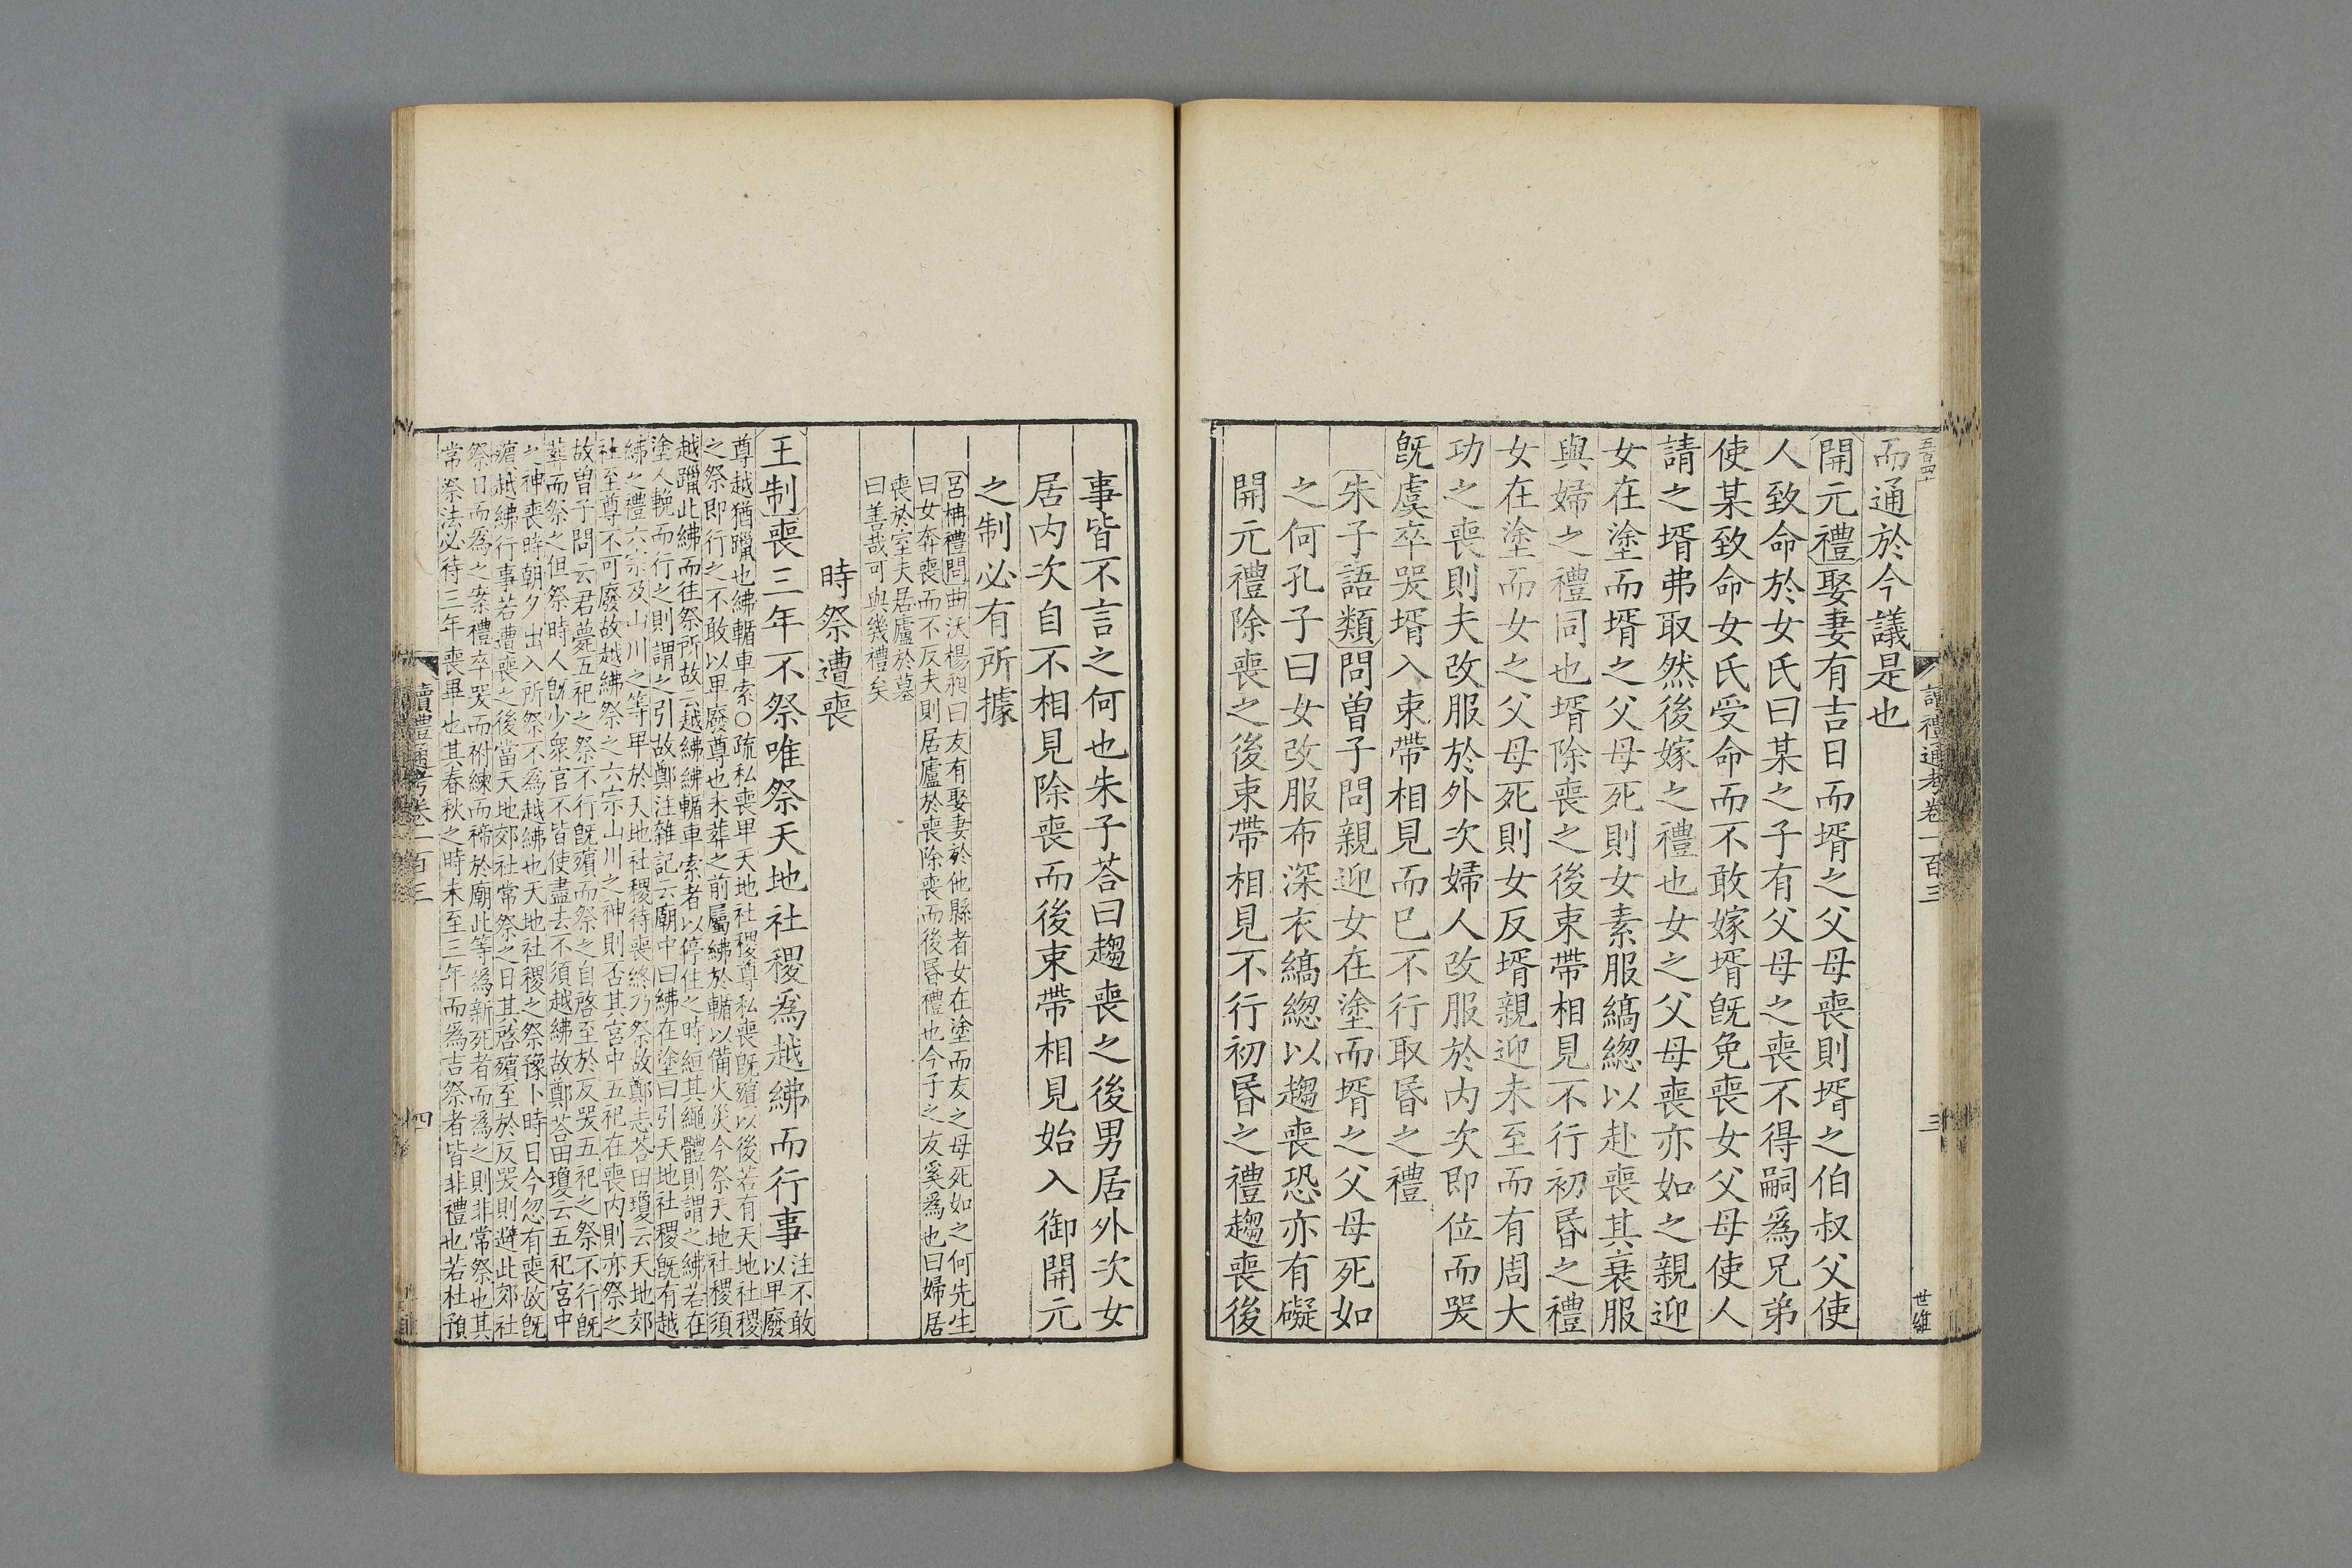 五百四十
讀禮通考卷一百三
三
世維
而通於今議是也
開元禮娶妻有吉日而壻之父母喪則壻之伯叔父使
人致命於女氏曰某之子有父母之喪不得嗣爲兄弟
使某致命女氏受命而不敢嫁壻旣免喪女父母使人
請之壻弗取然後嫁之禮也女之父母喪亦如之親迎
女在塗而壻之父母死則女素服縞總以赴喪其衰服
與婦之禮同也壻除喪之後束帶相見不行初昏之禮
女在塗而女之父母死則女反壻親迎未至而有周大
功之喪則夫改服於外次婦人改服於內次即位而哭
旣虞卒哭壻入束帶相見而已不行取昏之禮
朱子語類問曾子問親迎女在塗而壻之父母死如
之何孔子曰女改服布深衣縞總以趨喪恐亦有礙
開元禮除喪之後束帶相見不行初昏之禮趨喪後
事皆不言之何也朱子荅曰趨喪之後男居外次女
居內次自不相見除喪而後束帶相見始入御開元
之制必有所據
呂柟禮問曲沃楊昶曰友有娶妻於他縣者女在塗而友之母死如之何先生
曰女奔喪而不反夫則居廬於喪除喪而後昏禮也今子之友奚爲也曰婦居
喪於室夫居廬於墓
曰善哉可與幾禮矣
時祭遭喪
王制喪三年不祭唯祭天地社稷爲越紼而行事
注不敢
以卑廢
尊越猶躐也紼輴車索○疏私喪卑天地社稷尊私喪旣殯以後若有天地社稷
之祭即行之不敢以卑廢尊也未葬之前屬紼於輴以備火災今祭天地社稷須
越躐此紼而往祭所故云越紼紼輴車索者以停住之時紖其繩體則謂之紼若在
塗人輓而行之則謂之引故鄭注雜記云廟中曰紼在塗曰引天地社稷旣有越
紼之禮六宗及山川之等卑於天地社稷待喪終乃祭故鄭志荅田瓊云天地郊
社至尊不可廢故越紼祭之六宗山川之神則否其宮中五祀在喪內則亦祭之
故曾子問云君薨五祀之祭不行旣殯而祭之自啓至於反哭五祀之祭不行旣
葬而祭之但祭時人旣少衆官不皆使盡去不須越紼故鄭荅田瓊云五祀宮中
之神喪時朝夕出入所祭不爲越紼也天地社稷之祭豫卜時日今忽有喪故旣
殯越紼行事若遭喪之後當天地郊社常祭之日其啓殯至於反哭則避此郊社
祭日而爲之案禮卒哭而祔練而禘於廟此等爲新死者而爲之則非常祭也其
常祭法必待三年喪畢也其春秋之時未至三年而爲吉祭者皆非禮也若杜預
讀禮通考卷一百三
四